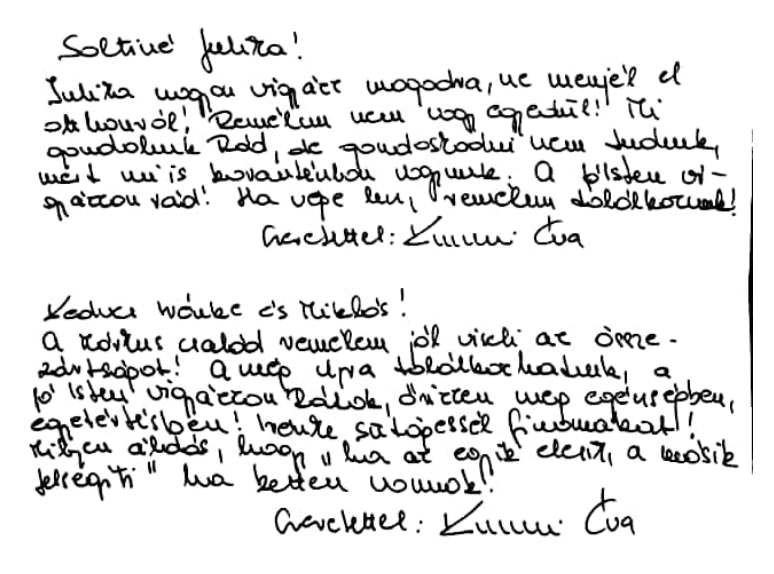 Soltiné Julika!
Julika nagyon vigyázz magadra, ne menjél el
otthonról! Remélem nem vagy egyedül! Mi
gondolunk Rád, de gondoskodni nem tudunk,
mert mi is karanténban vagyunk. A jóIsten vi-
gyázzon rád! Ha vége lesz, remélem találkozunk!
Szeretettel: Éva
Kedves Mónika és Miklós!
A család remélem jól viseli az össze-
zártságot! Amíg újra találkozhatunk, a
jó Isten vigyázzon Rátok, őrizzen meg egészségben,
egyetértésben! Mónika sütögessél finomakat!
Milyen áldás, hogy "ha az egyik elesik, a másik
felsegíti" ha ketten vannak!
Szeretettel: Éva